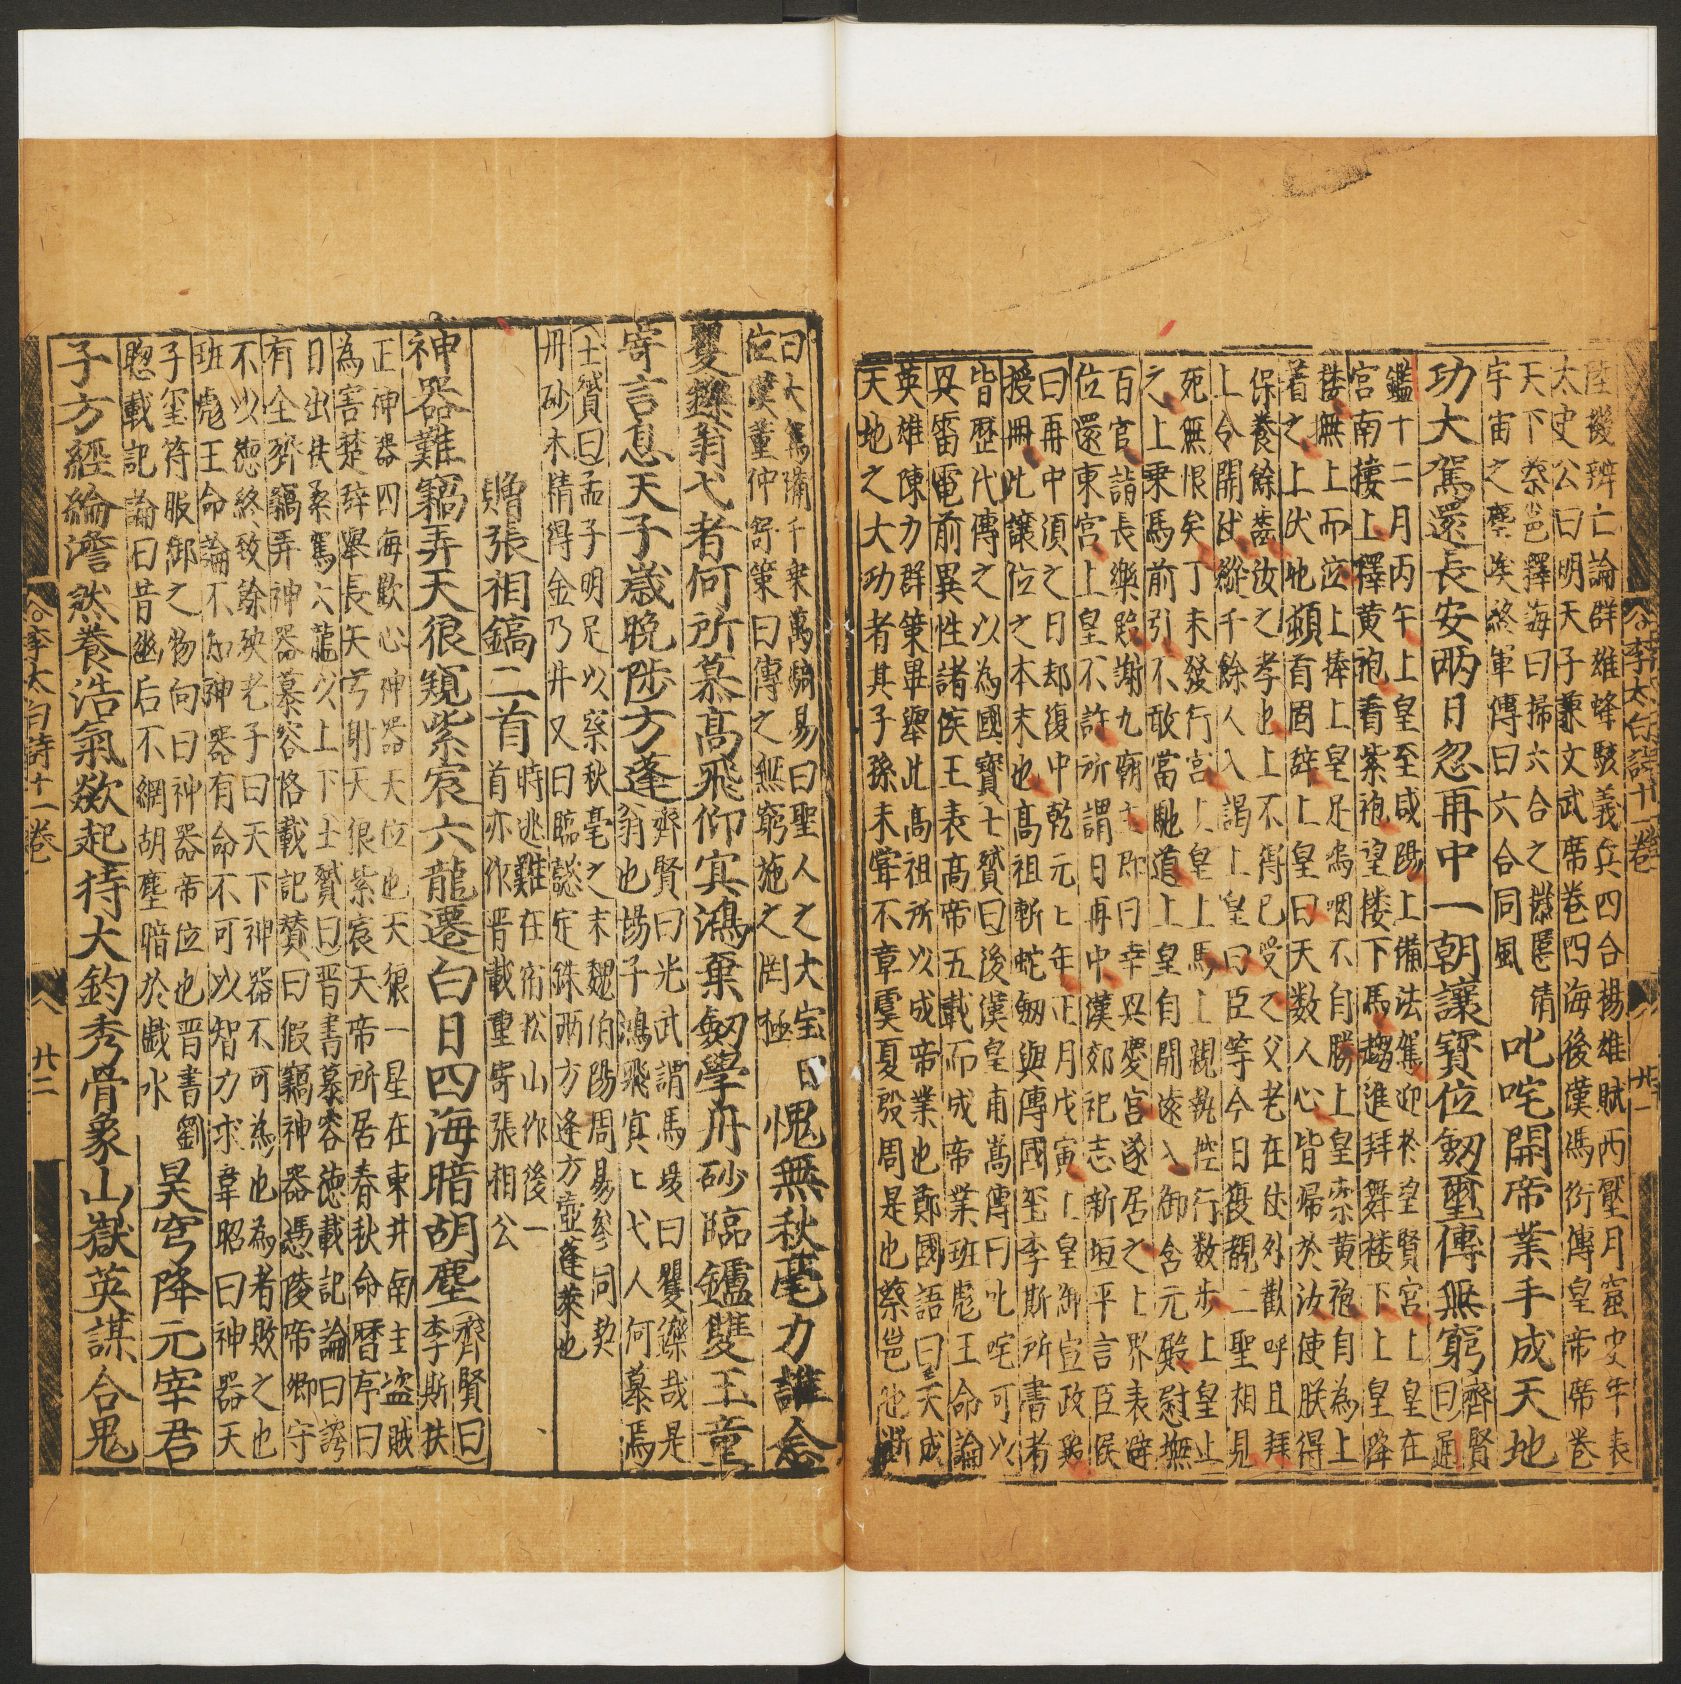 陸機辨亡論群雄蜂駭義兵四合揚雄賦西壓月窟史年表
太史公曰明天子兼文武席卷四海後漢馮衍傳皇帝席卷
天下蔡邕釋海曰掃六合之穢慝清
宇宙之塵埃終軍傳曰六合同風
叱咤開帝業手成天地
功大駕還長安兩日忽再中一朝讓寶位劒璽傳無窮
齊賢曰通
鑑十二月丙午上皇至咸陽上備法駕迎於望賢宮上皇在
宮南樓上釋黃袍着紫袍望樓下馬趨進拜舞樓下上皇降
樓撫上而泣上捧上皇足嗚咽不自勝上皇索黃袍自為上
着之上伏地頓首固辞上皇曰天数人心皆歸於汝使朕得
保養餘齒汝之孝也上不得已受之父老在仗外歡呼且拜
上令開仗縱千餘人入謁上皇曰臣等今日復覩二聖相見
死無恨矣丁未發行宮上皇上馬上親執控行数步上皇止
之上乗馬前引不敢當馳道上皇自開遠入御含元殿慰撫
百官詣長樂殿謝九廟主即日幸興慶宮遂居之上累表避
位還東宮上皇不許所謂日再中漢郊祀志新垣平言臣候
日再中須之日却復中乾元上年正月戊寅上皇御宣政殿
授冊此讓位之本末也高祖斬蛇劒與傳國璽李斯所書者
皆歷代傳之以為國寶士贇曰後漢皇甫嵩傳曰叱咤可以
興雷電前異性諸侯王表高帝五載而成帝業班彪王命論
英雄陳力群策畢舉此高祖所以成帝業也鄭國語曰夫成
天地之大功者其子孫未甞不章虞夏殷周是也蔡邕
曰大駕備千乗萬騎易曰聖人之大宝曰
位漢董仲舒策曰傳之無窮施之罔極
愧無秋毫力誰念
矍鑠翁弋者何所慕高飛仰冥鴻棄劒學丹砂臨鑪雙玉童
寄言息天子歲晩陟方蓬
齊賢曰光武謂馬援曰矍鑠哉是
翁也揚子鴻飛冥上弋人何慕焉
士贇曰孟子明足以察秋毫之末魏伯陽周易參同契
丹砂木精得金乃并又曰臨懿定銖兩方逢方壺蓬萊也
贈張相鎬二首
時逃難在宿松山作後一
首亦作晋載重寄張相公
神器難竊弄天很窺紫宸六龍遷白日四海暗胡塵
齊賢曰
李斯扶
正神器四海歡心神器天位也天狼一星在東井南主盗賊
為害楚辞舉長矢兮射天很紫宸天帝所居春秋命曆序曰
日出扶桑駕六龍以上下士贇曰晋書慕容德載記論曰誇
有全齊竊弄神器慕容恪載記賛曰假竊神器憑陵帝郷守
不以德終致餘殃老子曰天下神器不可為也為者敗之也
班彪王命論不知神器有命不可以智力求韋昭曰神器天
子璽符服御之物向曰神器帝位也晋書劉
聰載記論曰昔幽后不綱胡塵暗於戯水
昊穹降元宰君
子方經綸澹然養浩氣欻起持大鈞秀骨象山嶽英謀合鬼